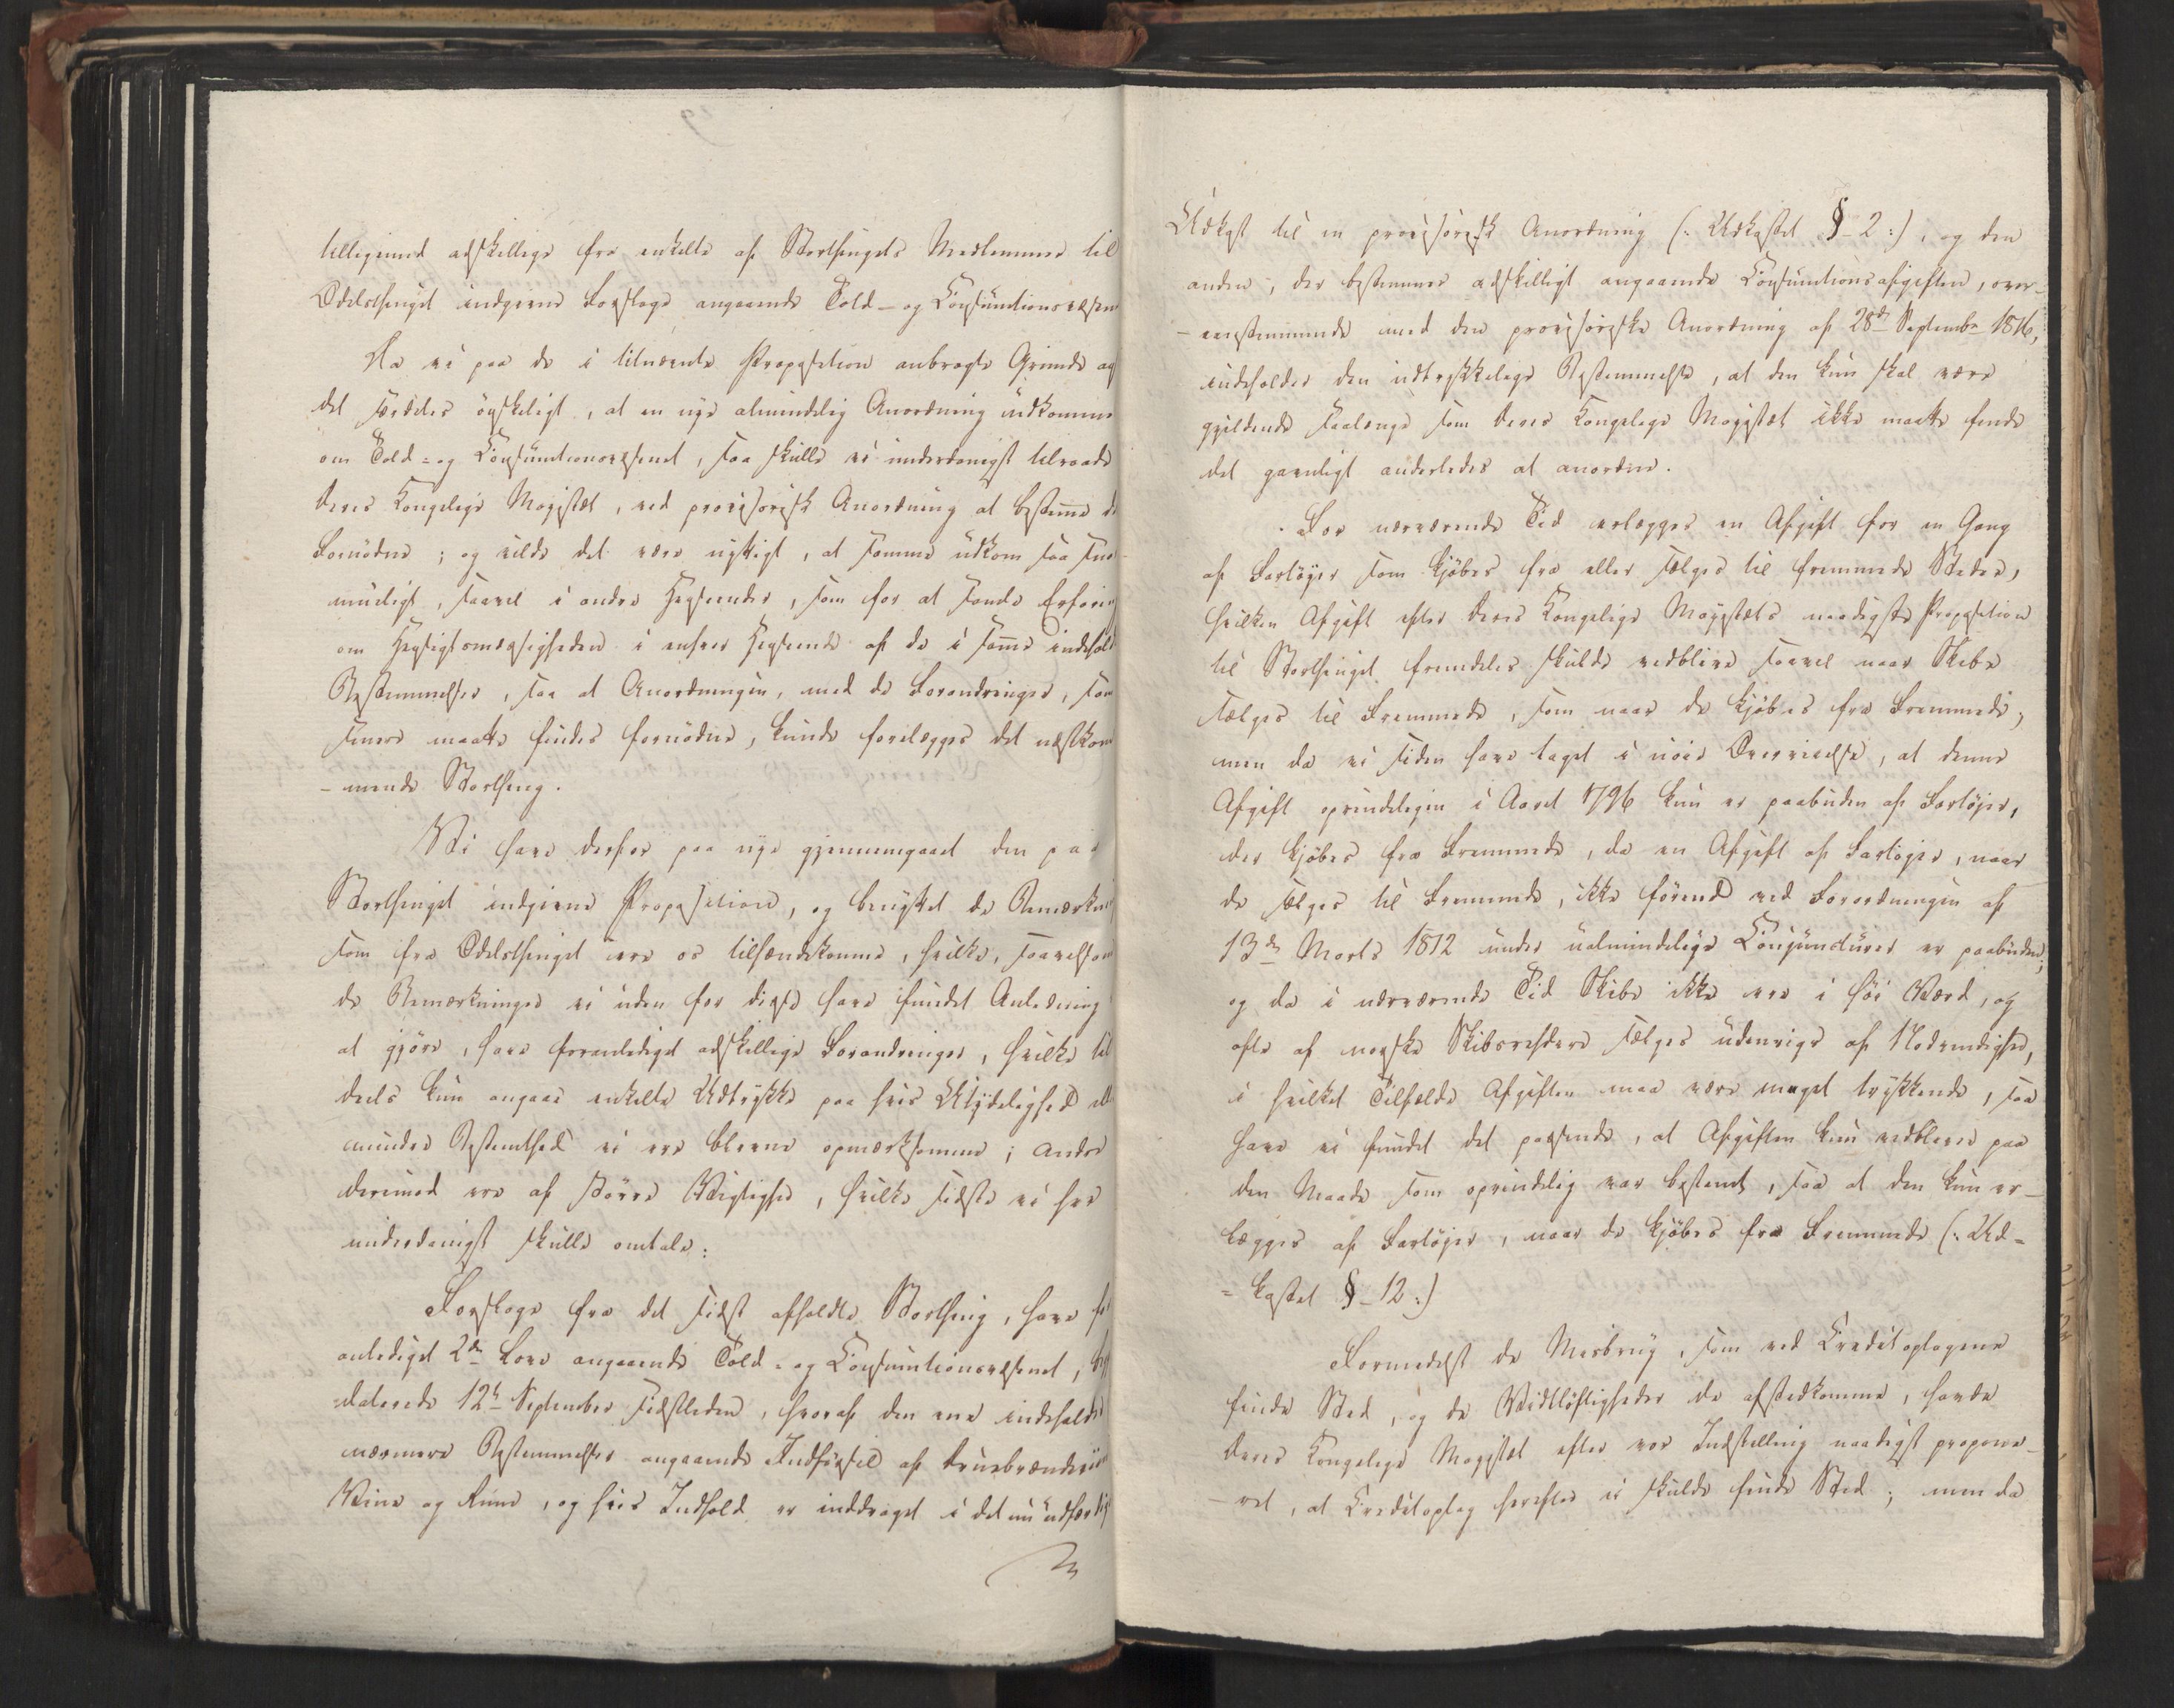 tilligemed adskillige fra enkelte af Storthingets Medlemmer til
Odelsthinget indgivne Forslage angaaende Told- og Consumtionsvæsen
Da vi paa de i bemeldte Proposition anbragte Grunde og
det saaledes ønskeligt, at en nye almindelig Anordning udkommer
om Told- og Consumtionsvæsenet, saa skulle vi underdanigst tilraade
Deres Kongelige Majestæt, ved provisorisk Anordning at bestemme de
Fornødne; og vilde det være vigtigt, at samme udkom saa snart
mueligt, saavel i andre Hensender, som for at samle Erfaring
om Hensigtsmæssigheden i enhver Henseende af de i samme indeholdt
Bestemmelser, saa at Anordningen, med de Forandringer, som
senere maatte findes fornødne, kunde forelægges det næstkom
-mende Storthing.
Vi have derfor paa nye gjennemgaaet den paa
Storthinget indgivne Proposition, og benyttet de Bemærkn
som fra Odelsthinget ere os tilhændekomne, hvilke, saavelsom
de Bemærkninger vi uden for disse have fundet Anledning
at gjøre, have foranlediget adskillige Forandringer, hvilke til
deels kun angaae enkelte Udtrykke paa hvis Utydelighed ell
mindre Bestemthed vi ere blevne opmærksomme; andre
derimod ere af større Vigtighed, hvilke sidste vi her
underdanigst skulle omtale:
Forslage fra det sidst afholdte Storthing, have for
anlediget 2de Love angaaende Told- og Consumtionsvæsenet, beg
daterede 12te September sidstleden, hvoraf den ene indeholder
nærmere Bestemmelser angaaende Indførsel af Druebrændeviin
Vine og Rum, og hvis Indhold er inddraget i det nu udfærdig
Udkast til en provisorisk Anordning (: Udkastet §-2:), og den
anden, der bestemmer adskilligt angaaende Consumtionsafgiften, over-
-eensstemmende med den provisoriske Anordning af 28de September 1816,
indeholder den udtrykkelige Bestemmelse, at den kun skal være
gjeldende saalænge som Deres Kongelige Majestæt ikke maatte finde
det gavnligt anderledes at anordne.
For nærværende Tid erlægges en Afgift for en Gang
af Fartøyer som kjøbes fra eller sælges til fremmede Steder,
hvilken Afgift efter Deres Kongelige Majestæts naadigste Proposition
til Storthinget fremdeles skulde vedblive saavel naar Skibe
sælges til Fremmede, som naar de kjøbes fra Fremmede;
men da vi siden have taget i nøie Overveielse, at denne
Afgift oprindeligen i Aaret 1796 kun er paabuden af Fartøjer,
der kjøbes fra Fremmede, da en Afgift af Fartøjer, naar
de sælges til Fremmede, ikke førend ved Forordningen af
13de Marts 1812 under ualmindelige Conjuncturer er paabuden;
og da i nærværende Tid Skibe ikke ere i høi Værd, og
ofte af norske Skibsrehdere sælges udenrigs af Nødvendighed,
i hvilket Tilfælde Afgiften maa være meget trykkende, saa
have vi fundet det passende, at Afgiften kun vedbliver paa
den Maade som oprindelig var bestemt, saa at den kun er-
lægges af Fartøjer, naar de kjøbes fra Fremmede (: Ud-
=kastet §-12:)
Formedelst de Misbrug, som ved Creditoplagene
finde Sted, og de Vidtløftigheder de afstedkomme, havde
Deres Kongelige Majestæt efter vor Indstilling naadigst propone-
-ret, at Creditoplag herefter ei skulde finde Sted; men da